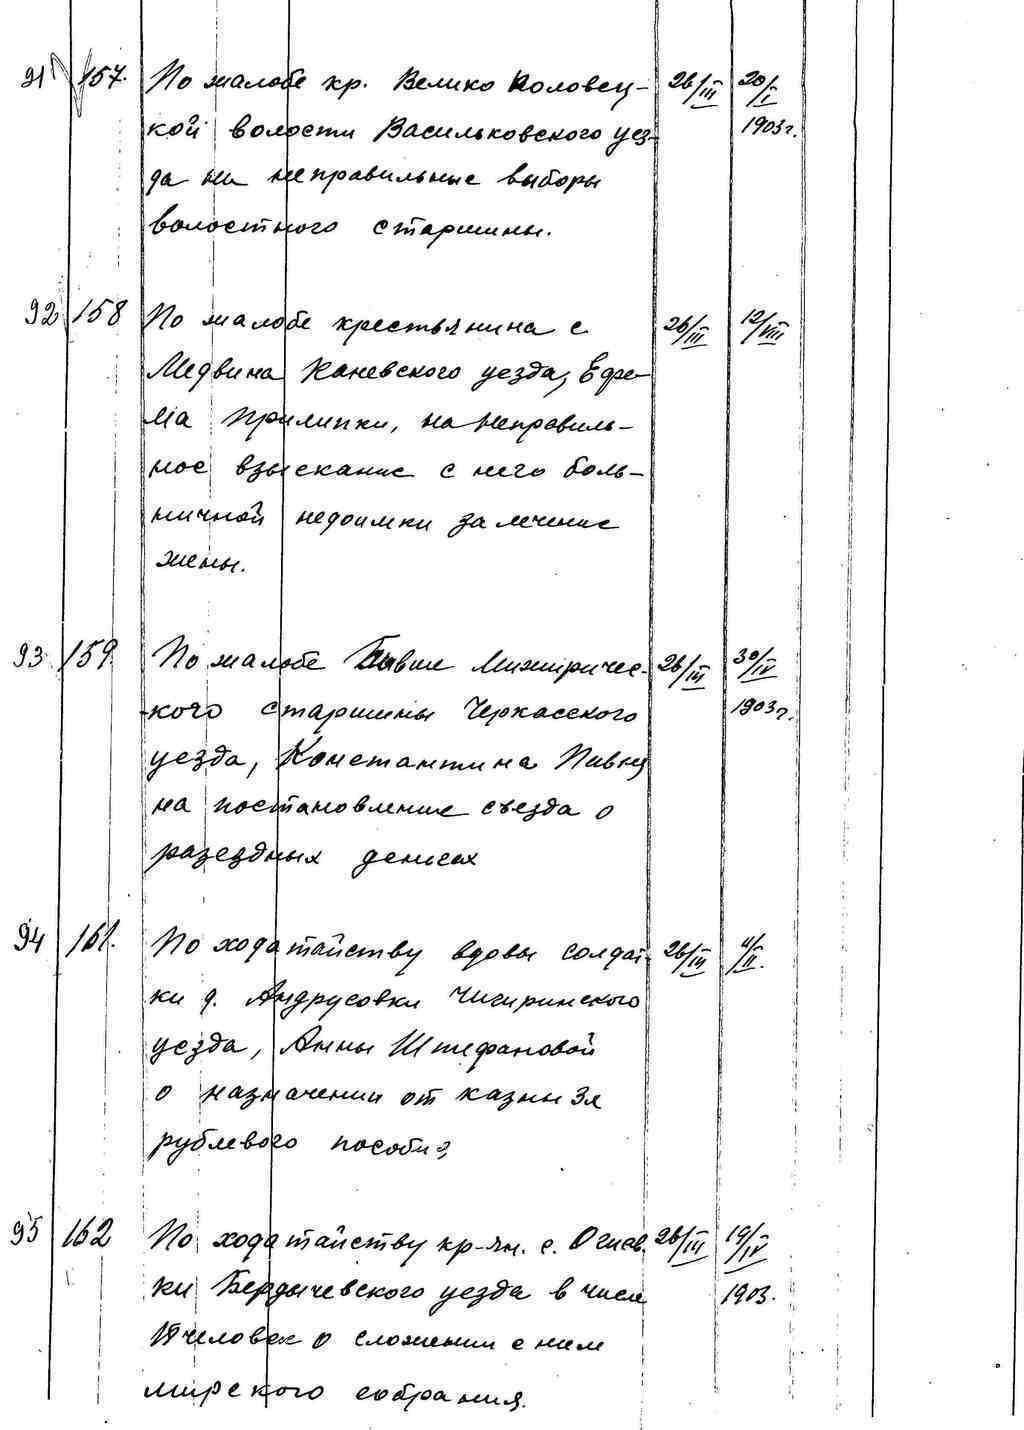 91 157. По жалобе кр. Велико Половец- 26/III 20/I
кой волости Васильковского уез- 1903 г.
да на неправильные выборы
волостного старшины.
92 158 По жалобе крестьянина с 26/III 12/VIII
Медвина Каневского уезда, Ефре-
ма Прилипки, на неправиль-
ное взыскание с него боль-
ничной недоимки за лечение
жены.
93 159. По жалобе бывше Межиричес- 26/III 30/IV
кого старшины Черкасского 1903 г.
уезда, Константина Пивня
на постановление съезда о
разездных деньгах
94 161. По ходатайству вдовы солдат- 26/III 4/II.
ки д. Андрусовки Чигиринского
уезда, Анны Штефановой
о назначении от казны 3х
рублевого пособия,
95 162 По ходатайству кр-ян. с. 26/III 19/IV
ки Бердычевского уезда в числе 1903.
человек о сложении с ним
мирского собрания.